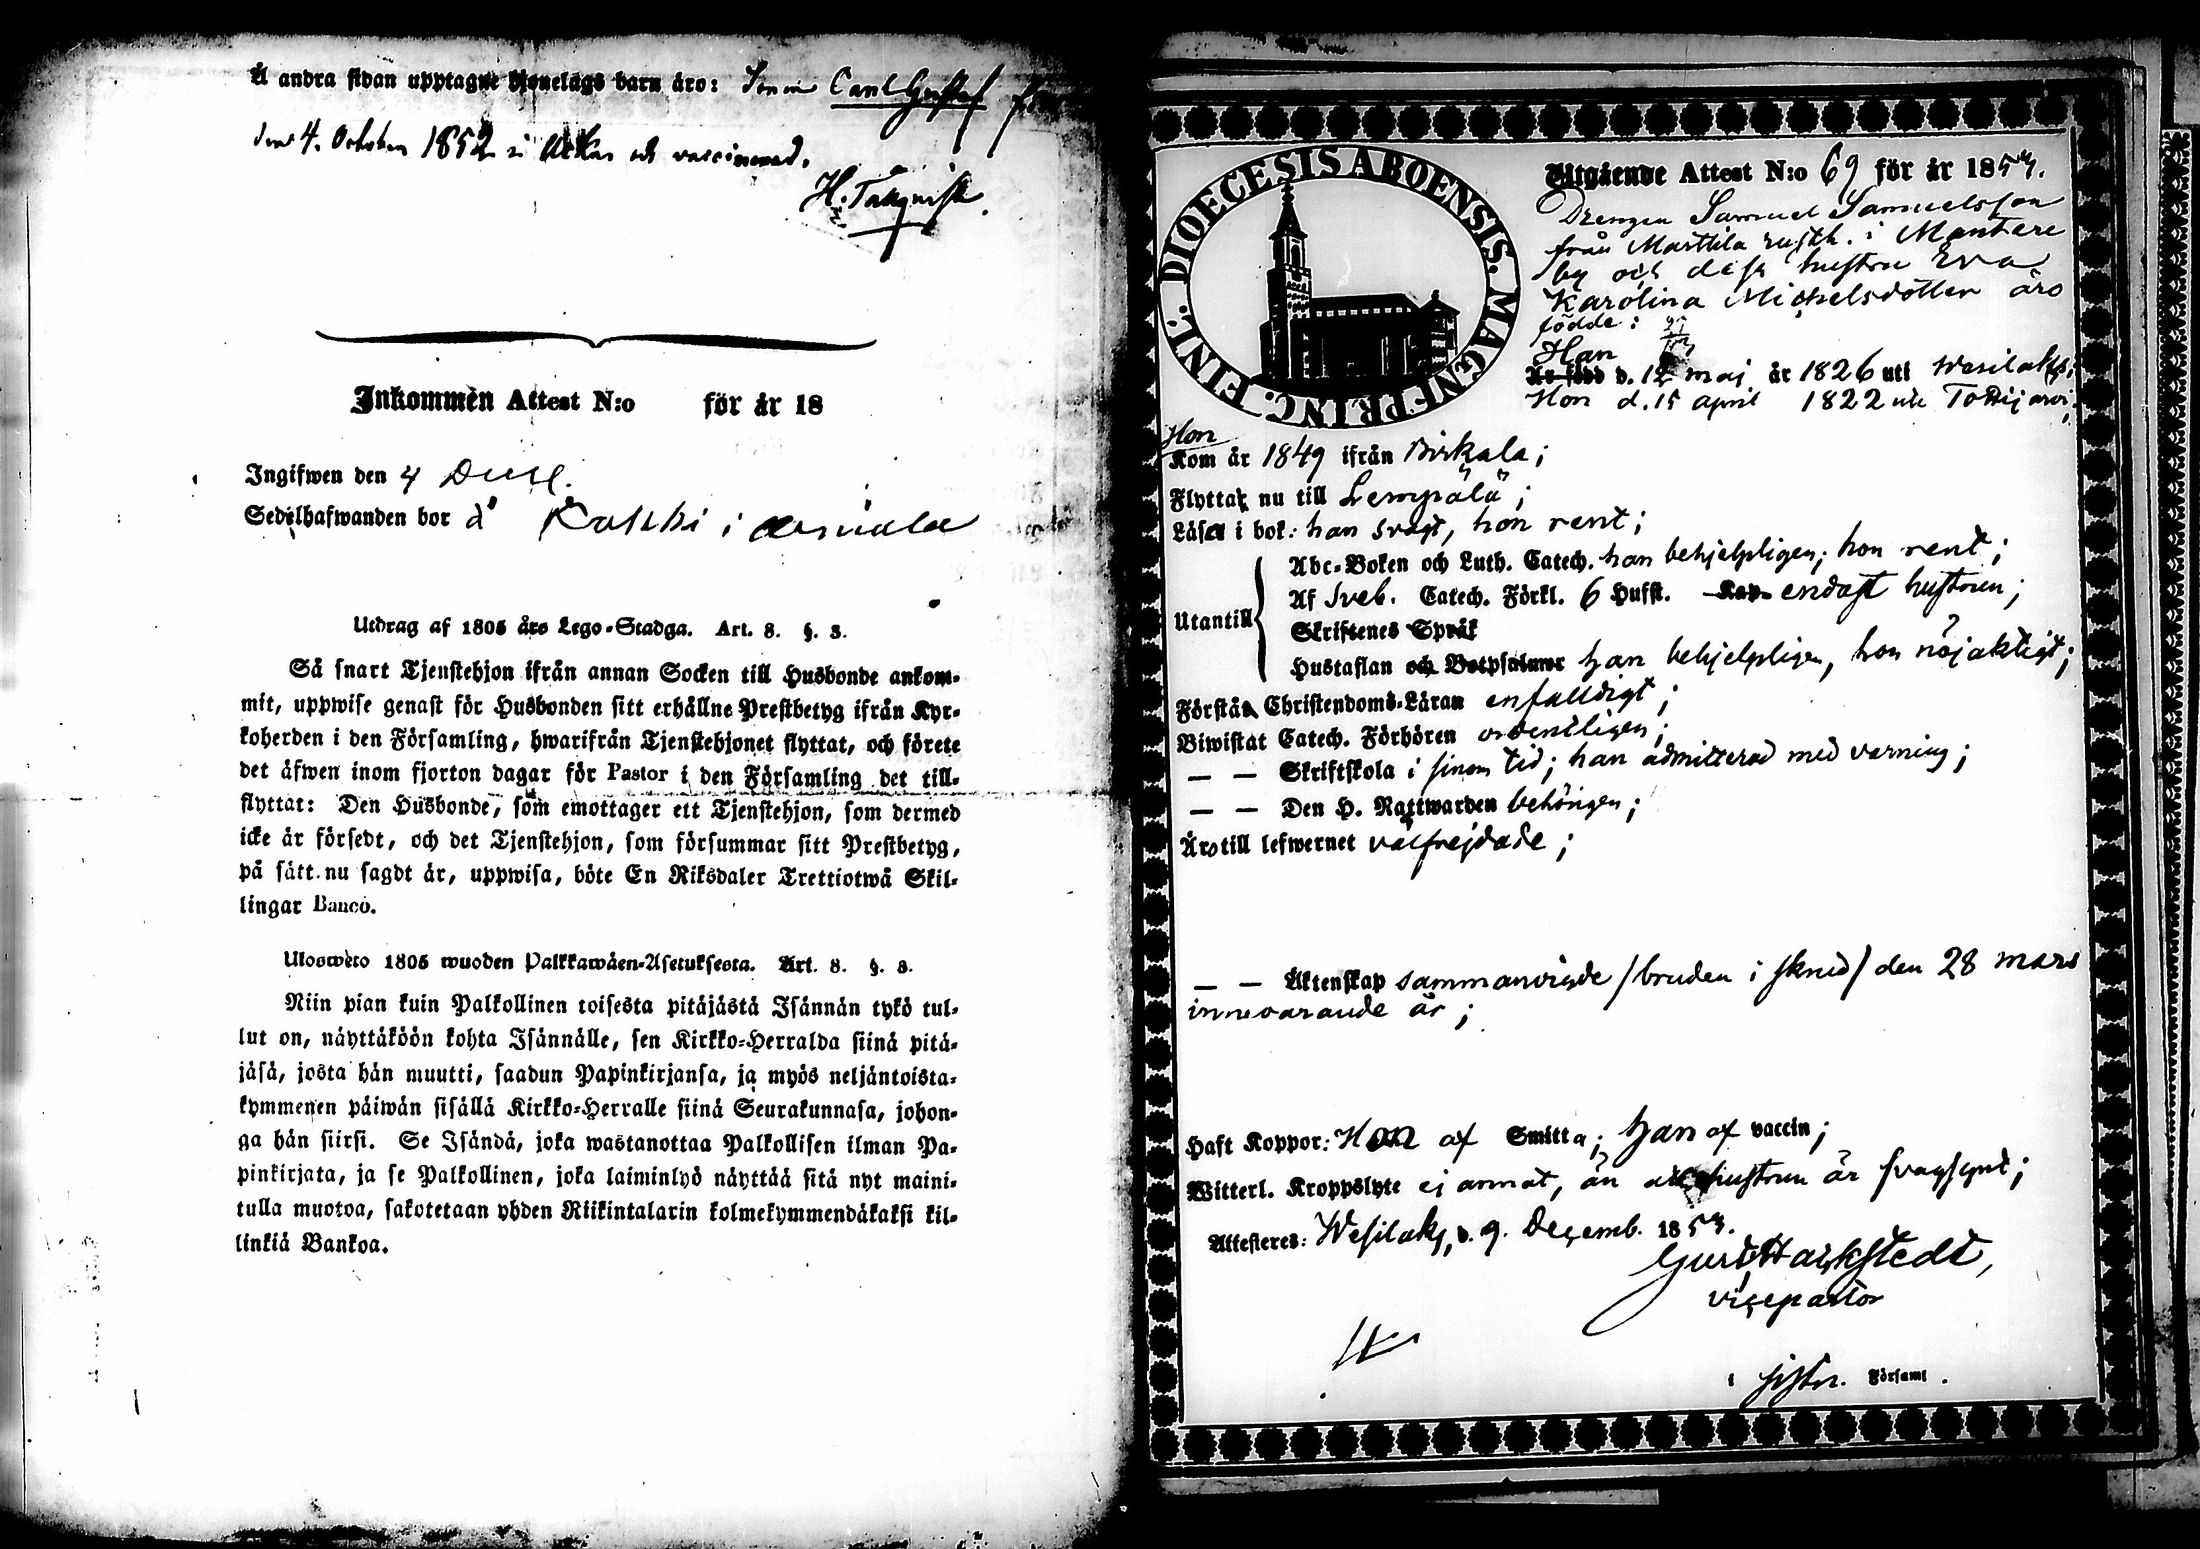 Å andra sidan upptagne Hjonelags barn äro: Sonen Carl Gustaf
den 4. October 1852 i och vaccinerad.
H.
Inkommen Attest N:o för år 18
Ingifwen den 4 Dec.
Sedelhafwanden bor å i
Utdrag af 1805 års Lego-Stadga. Art. 8. §. 3.
Så snart Tjenstehjon ifrån annan Socken till Husbonde ankom-
mit, uppwise genast för Husbonden sitt erhållne Prestbetyg ifrån Kyr-
koherden i den Församling, hwarifrån Tjenstehjonet flyttat, och förete
det äfwen inom fjorton dagar för Pastor i den Församling det till-
flyttat: Den Husbonde, som emottager ett Tjenstehjon, som dermed
icke är försedt, och det Tjenstehjon, som försummar sitt Prestbetyg,
på sätt nu sagdt är, uppwisa, böte En Riksdaler Trettiotwå Skil-
lingar Banco.
Uloswèto 1805 wuoden Palkkawäen-Asetuksesta. Art. 8. §. 3.
Niin pian kuin Palkollinen toisesta pitäjästä Isännän tykö tul-
lut on, näyttäköön kohta Isännälle, sen Kirkko-Herralda siinä pitä-
jäsä, josta hän muutti, saadun Papinkirjansa, ja myös neljäntoista-
kymmenen päiwän sisällä Kirkko-Herralle siinä Seurakunnasa, johon-
ga hän siirsi. Se Isändä, joka wastanottaa Palkollisen ilman Pa-
pinkirjata, ja se Palkollinen, joka laiminlyö näyttää sitä nyt maini-
tulla muotoa, sakotetaan yhden Riikintalarin kolmekymmendäkaksi kil-
linkiä Bankoa.
DIOECESIS ABOENSIS. MAGNI PRINC. FINL.
Utgående Attest N:o 69 för år 1853.
Drengen Samuel Samuelsson
från Marttila rusth. i Mantere
by och dess hustru Eva
Karolina Michelsdotter äro
födde:
Han
Är född d. 12 maj år 1826 uti Wesilaks;
Hon d. 15 april 1822 uti Tottijärvi;
Hon
Kom år 1849 ifrån Birkala;
Flyttar nu till Lempälä;
Läser i bok: han svagt, hon rent;
Abc-Boken och Luth. Catech. han behjelpligen; hon rent;
Utantill Af Sveb. Catech. Förkl. 6 Hufst. Kap. endast hustrun;
Skriftenes Språk
Hustaflan och Botpsalmer han behjelpligen, hon nöjaktigt;
Förstår Christendoms-Läran enfaldigt;
Biwistat Catech. Förhören ordentligen;
— — Skriftskola i sinom tid; han admitterad med varning;
— — Den H. Nattwarden behörigen;
Äro till lefwernet välfrejdade;
— — Äktenskap sammanvigde /bruden i skrud/ den 28 mars
innevarande år;
Haft Koppor: Hon af Smitta; han af vaccin;
Witterl. Kroppslyte ej annat, än att hustrun är svagsynt;
Attesteres: Wesilaks, d. 9. Decemb. 1853.
vicepastor
i Församl.